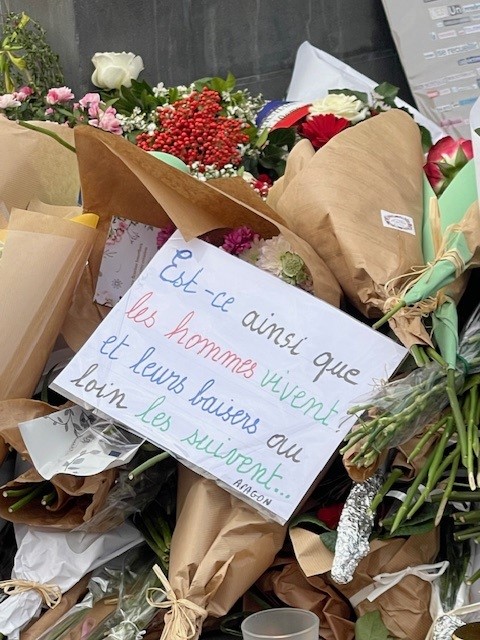 Est-ce ainsi que
les hommes vivent ?
et leurs baisers au
loin les suivent...
ARAGON